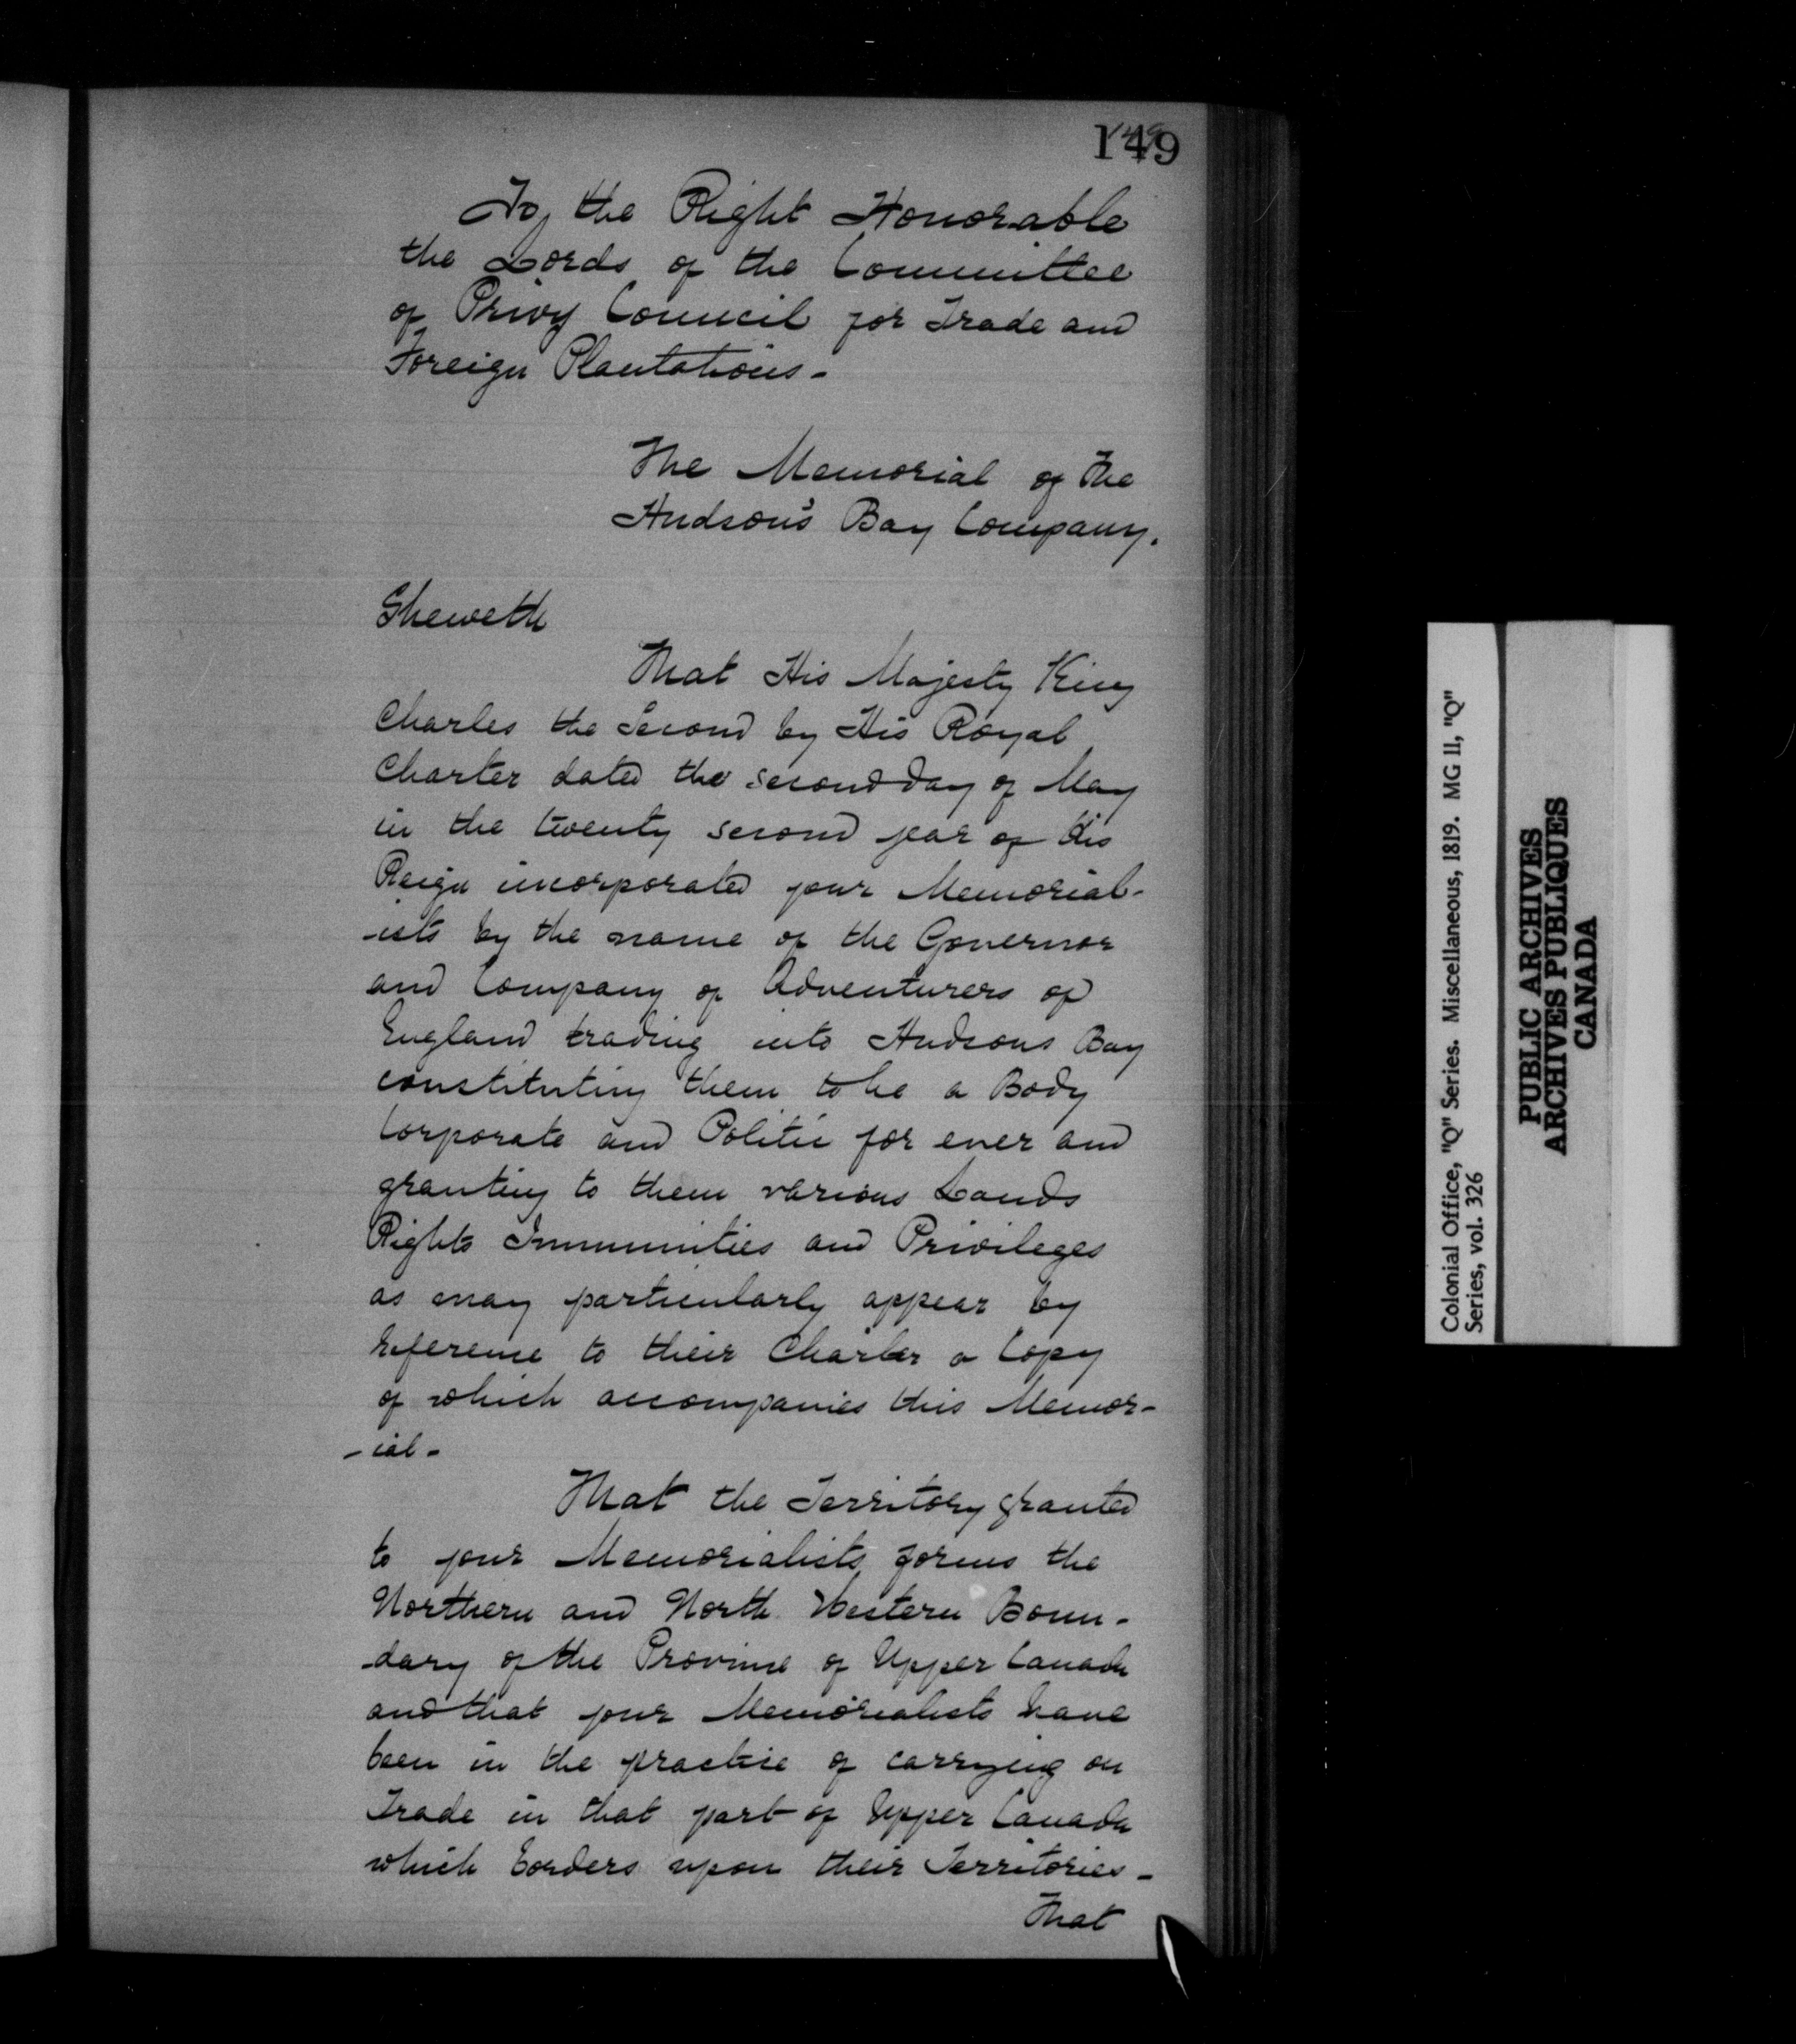 149
To, the Right Honorable
the Lords of the Committee
of Privy Council for Trade and
Foreign Plantations-
The Memorial of The
Hudson's Bay Company.
Sheweth
That His Majesty King
Charles the Second by His Royal
Charter dated the second day of May
in the twenty second year of His
Reign incorporated your Memorial-
-ists by the name of the Governor
and Company of Adventurers of
England trading into Hudsons Bay
constituting them to be a Body
Corporate and Politic for ever and
granting to them various Lands
Rights Immunities and Privileges
as may particularly appear by
reference to their Charter a Copy
of which accompanies this Memor-
-ial-
That the Territory granted
to your Memorialists forms the
Northern and North Western Boun-
-dary of the Province of Upper Canada
and that your Memorialists have
been in the practice of carrying on
Trade in that part of Upper Canada
which borders upon their Territories-
That
Colonial Office, "Q" Series. Miscellaneous, 1819. MG 11, "Q"
Series, vol. 326
PUBLIC ARCHIVES
ARCHIVES PUBLIQUES
CANADA